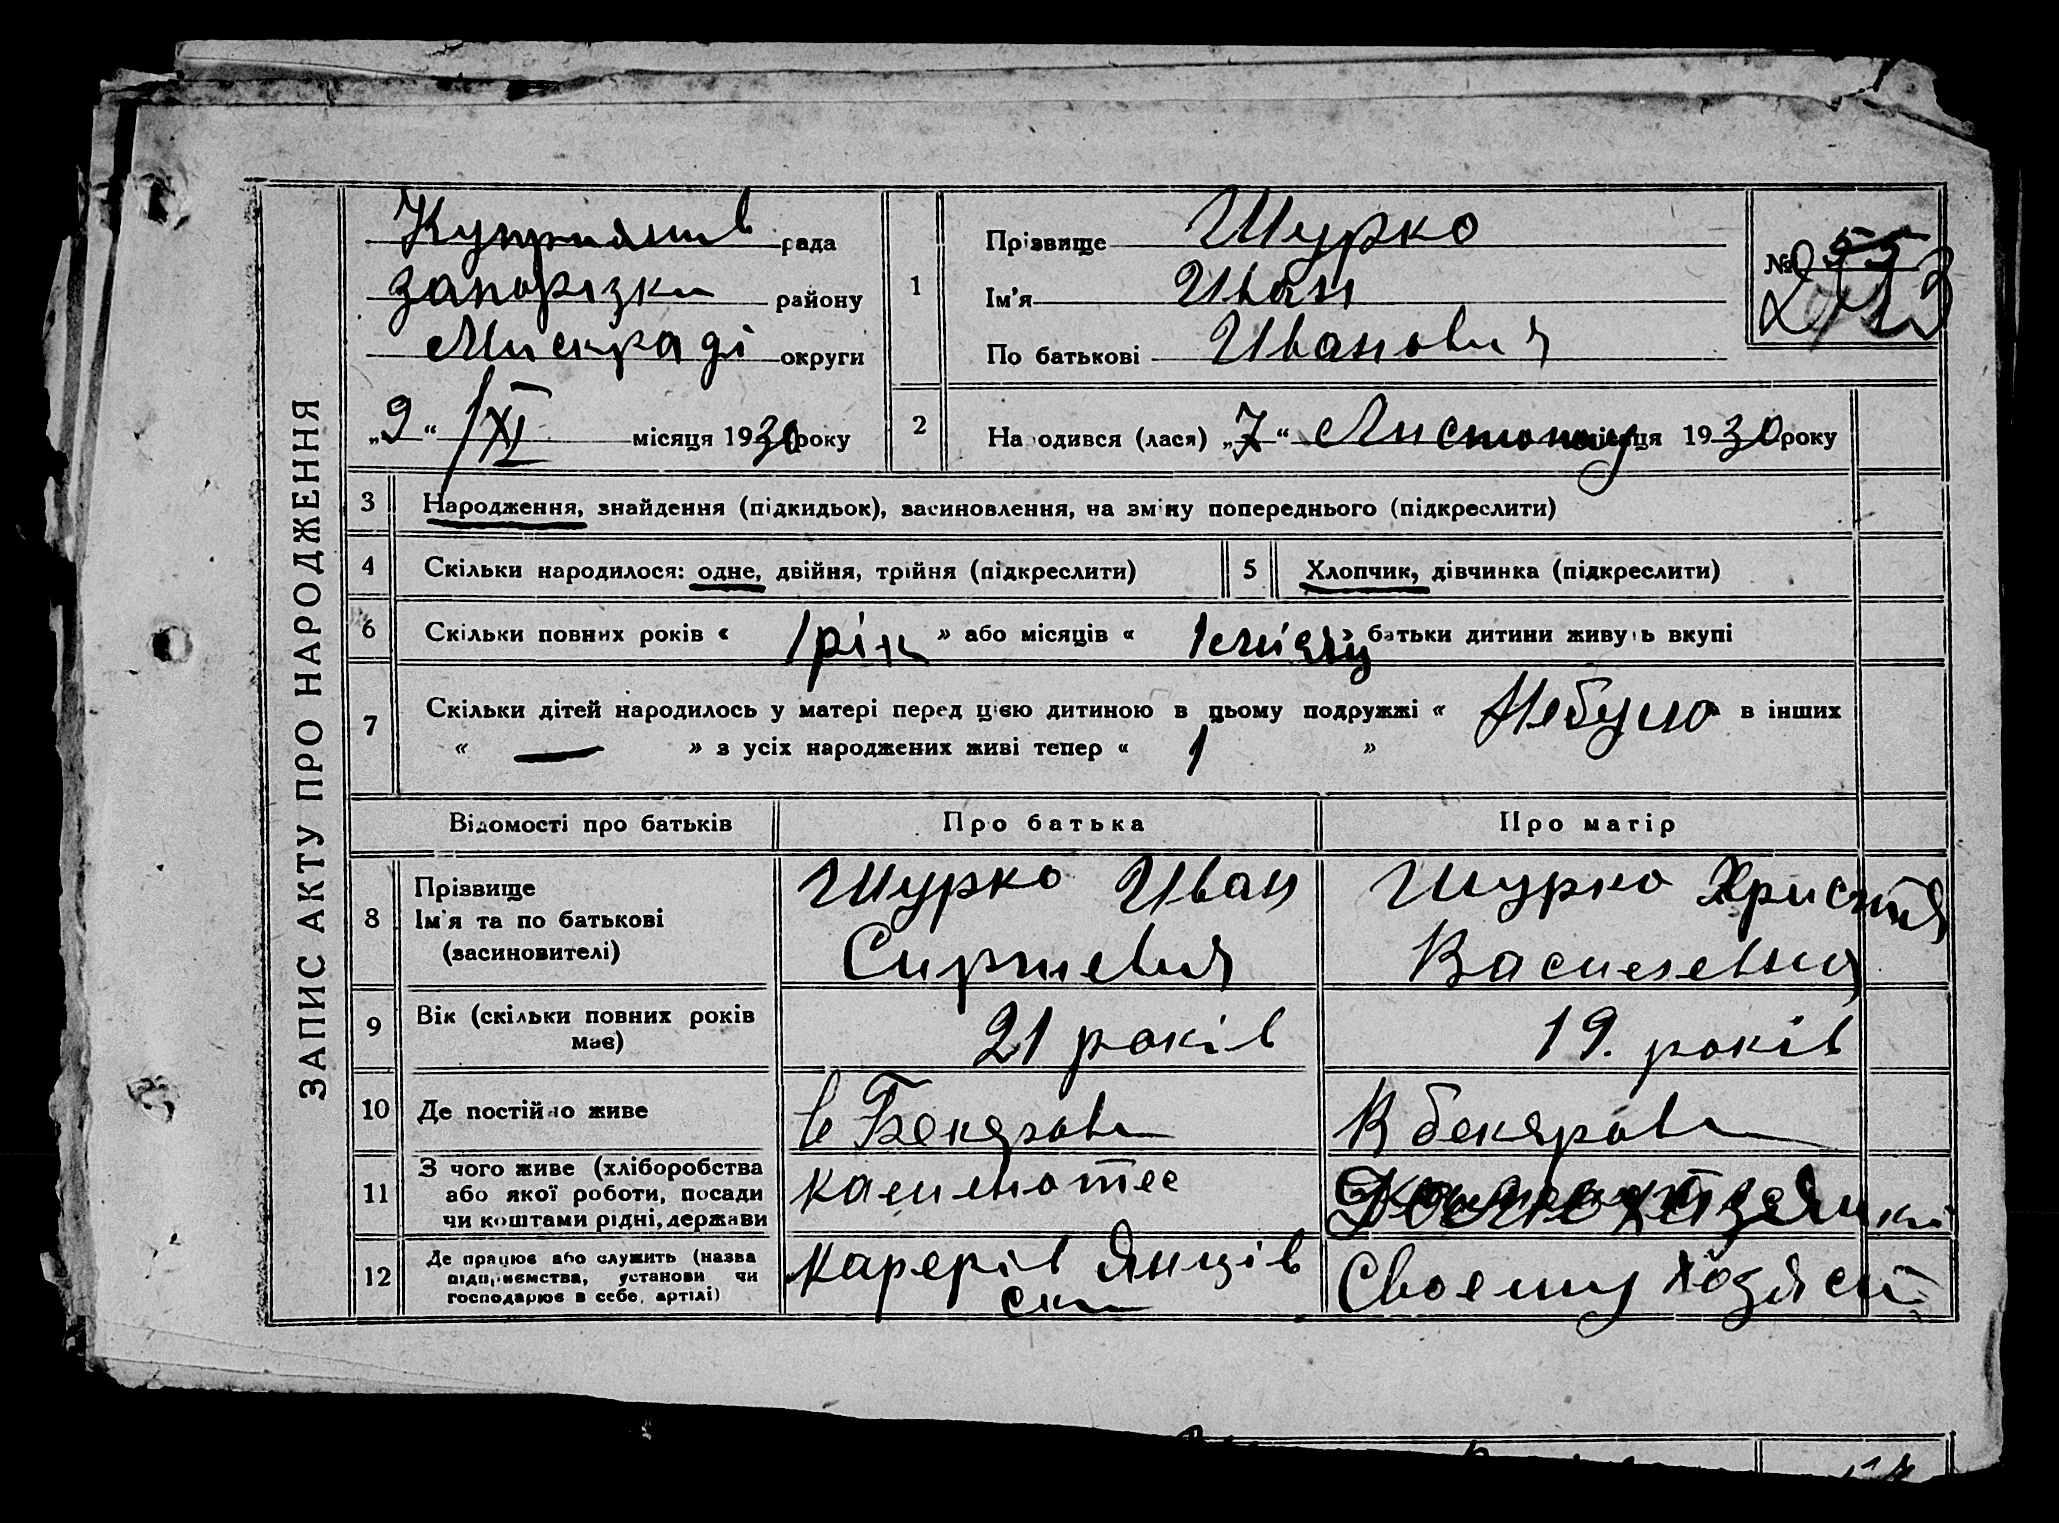 ЗАПИС АКТУ ПРО НАРОДЖЕННЯ
рада
Запорізки району
Мискраді округи
„9“ /XI місяця 1930 року
1
Прізвище Шурко
Ім'я Иван
По батькові Иванович
№ 55
2
Народився (лася) „7“ Листопад місяця 1930 року
3 Народження, знайдення (підкидьок), засиновлення, на зміну попереднього (підкреслити)
4 Скільки народилося: одне, двійня, трійня (підкреслити) 5 Хлопчик, дівчинка (підкреслити)
6 Скільки повних років « 1 рік » або місяців « 1 місяц » батьки дитини живуть вкупі
7 Скільки дітей народилось у матері перед цією дитиною в цьому подружжі « Небуло » в інших
« — » з усіх народжених живі тепер « 1 »
Відомості про батьків Про батька Про матір
8 Прізвище
Ім'я та по батькові
(засиновителі)
Шурко Иван
Шурко Христя
Василевна
9 Вік (скільки повних років
має)
21 років
19. років
10 Де постійно живе
в Бекярови
В бекярови
11 З чого живе (хліборобства
або якої роботи, посади
чи коштами рідні, держави
камнотес
12 Де працює або служить (назва
підприємства, установи чи
господарює в себе, артілі)
карєрів Янців
ски
Своему хозяст